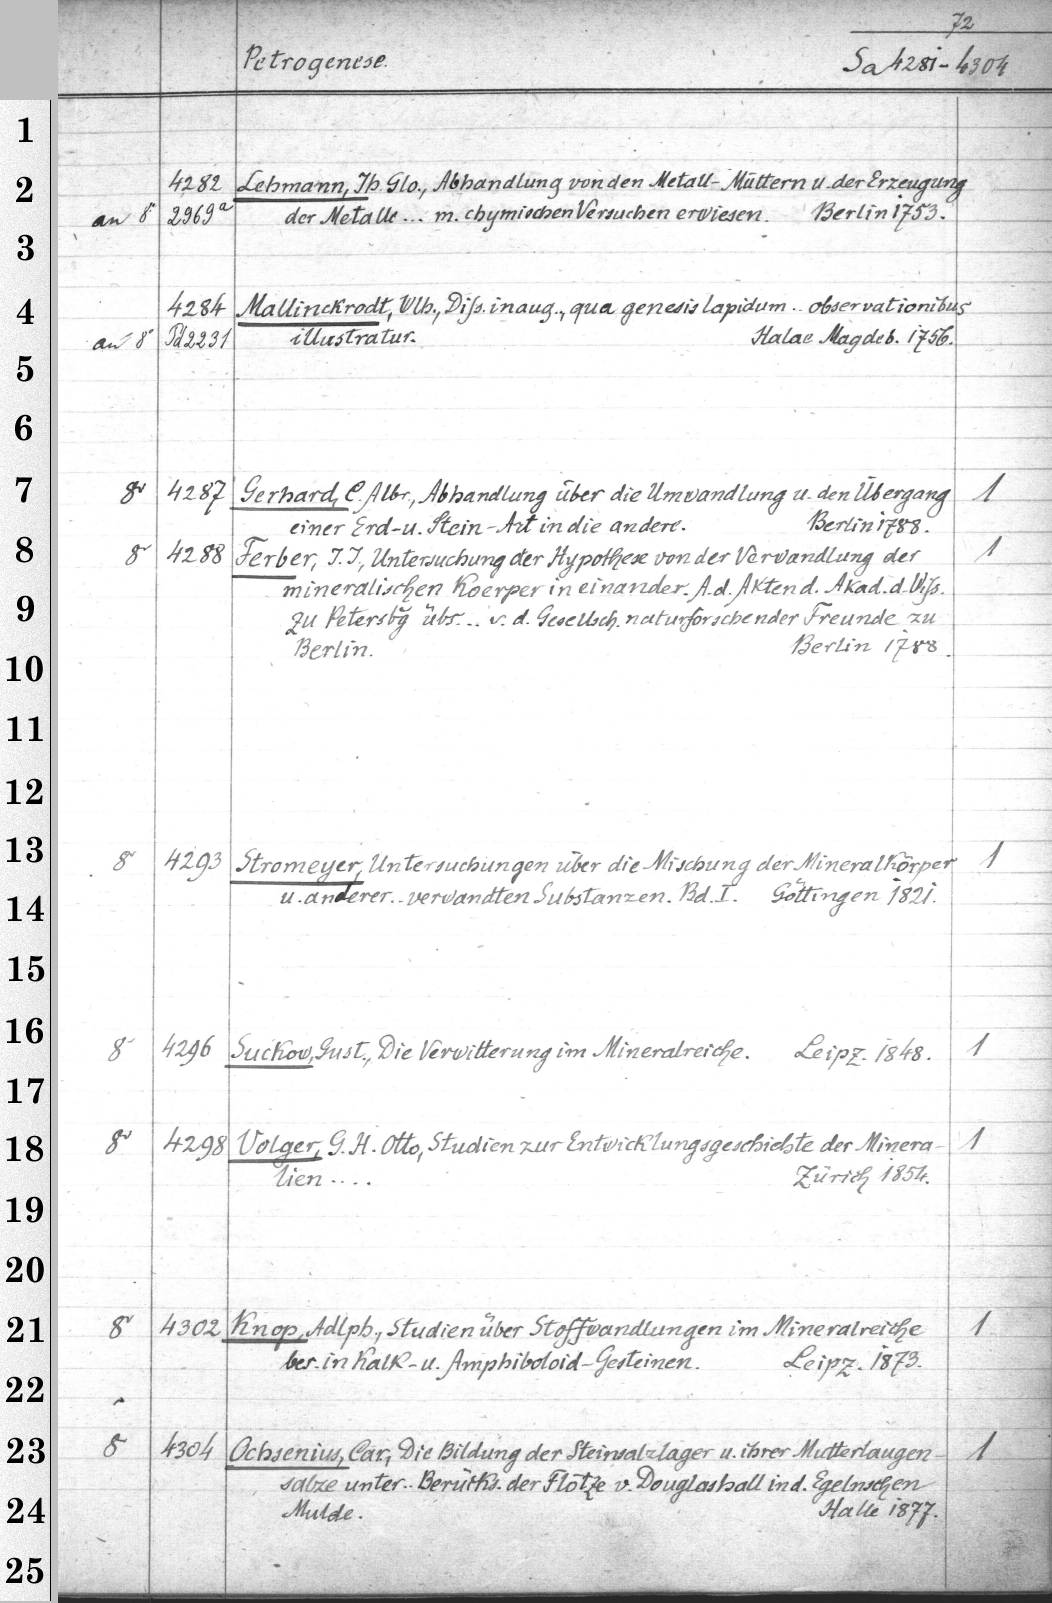 72
Petrogenese. Sa 4281-4304
1
2 4282 Lehmann, Jh. Glo., Abhandlung von den Metall-Müttern u. der Erzeugung
an 8° 2969a der Metalle ... m. chymischen Versuchen erwiesen. Berlin 1753.
3
4 4284 Mallinckrodt, Wlh., Diss. inaug., qua genesis lapidum .. observationibus
an 8° Pd 2231 illustratur. Halae Magdeb. 1756.
5
6
7 8° 4287 Gerhard, C. Albr., Abhandlung über die Umwandlung u. den Übergang 1
einer Erd- u. Stein-Art in die andere. Berlin 1788.
8 8° 4288 Ferber, J. J., Untersuchung der Hypothese von der Verwandlung der 1
mineralischen Koerper in einander. A. d. Akten d. Akad. d. Wiss.
9 zu Petersbg übs... v. d. Gesellsch. naturforschender Freunde zu
Berlin. Berlin 1788.
10
11
12
13 8° 4293 Stromeyer, Untersuchungen über die Mischung der Mineralkörper 1
14 u. anderer .. verwandten Substanzen. Bd. I. Göttingen 1821.
15
16 8° 4296 Suckow, Gust., Die Verwitterung im Mineralreiche. Leipz. 1848. 1
17
18 8° 4298 Volger, G. H. Otto, Studien zur Entwicklungsgeschichte der Minera- 1
lien .... Zürich 1854.
19
20
21 8° 4302 Knop, Adlph., Studien über Stoffwandlungen im Mineralreiche 1
bes. in Kalk- u. Amphiboloid-Gesteinen. Leipz. 1873.
22
23 8 4304 Ochsenius, Car., Die Bildung der Steinsalzlager u. ihrer Mutterlaugen- 1
salze unter .. Berücks. der Flötze v. Douglashall in d. Egelnschen
24 Mulde. Halle 1877.
25